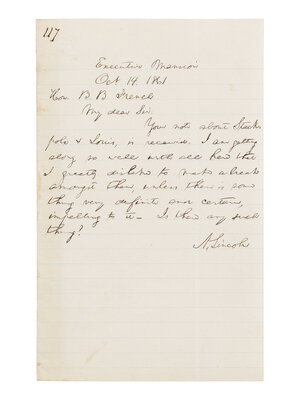 117
Executive Mansion
Oct 14. 1861
Hon. B. B. French
My dear Sir.
Your note about Stack
pole & Louis, is received. I am getting
along so well with all here that
I greatly dislike to make a break
amongst them, unless there is some
thing very definite and certain,
impelling to it- Is there any such
thing?
A. Lincoln